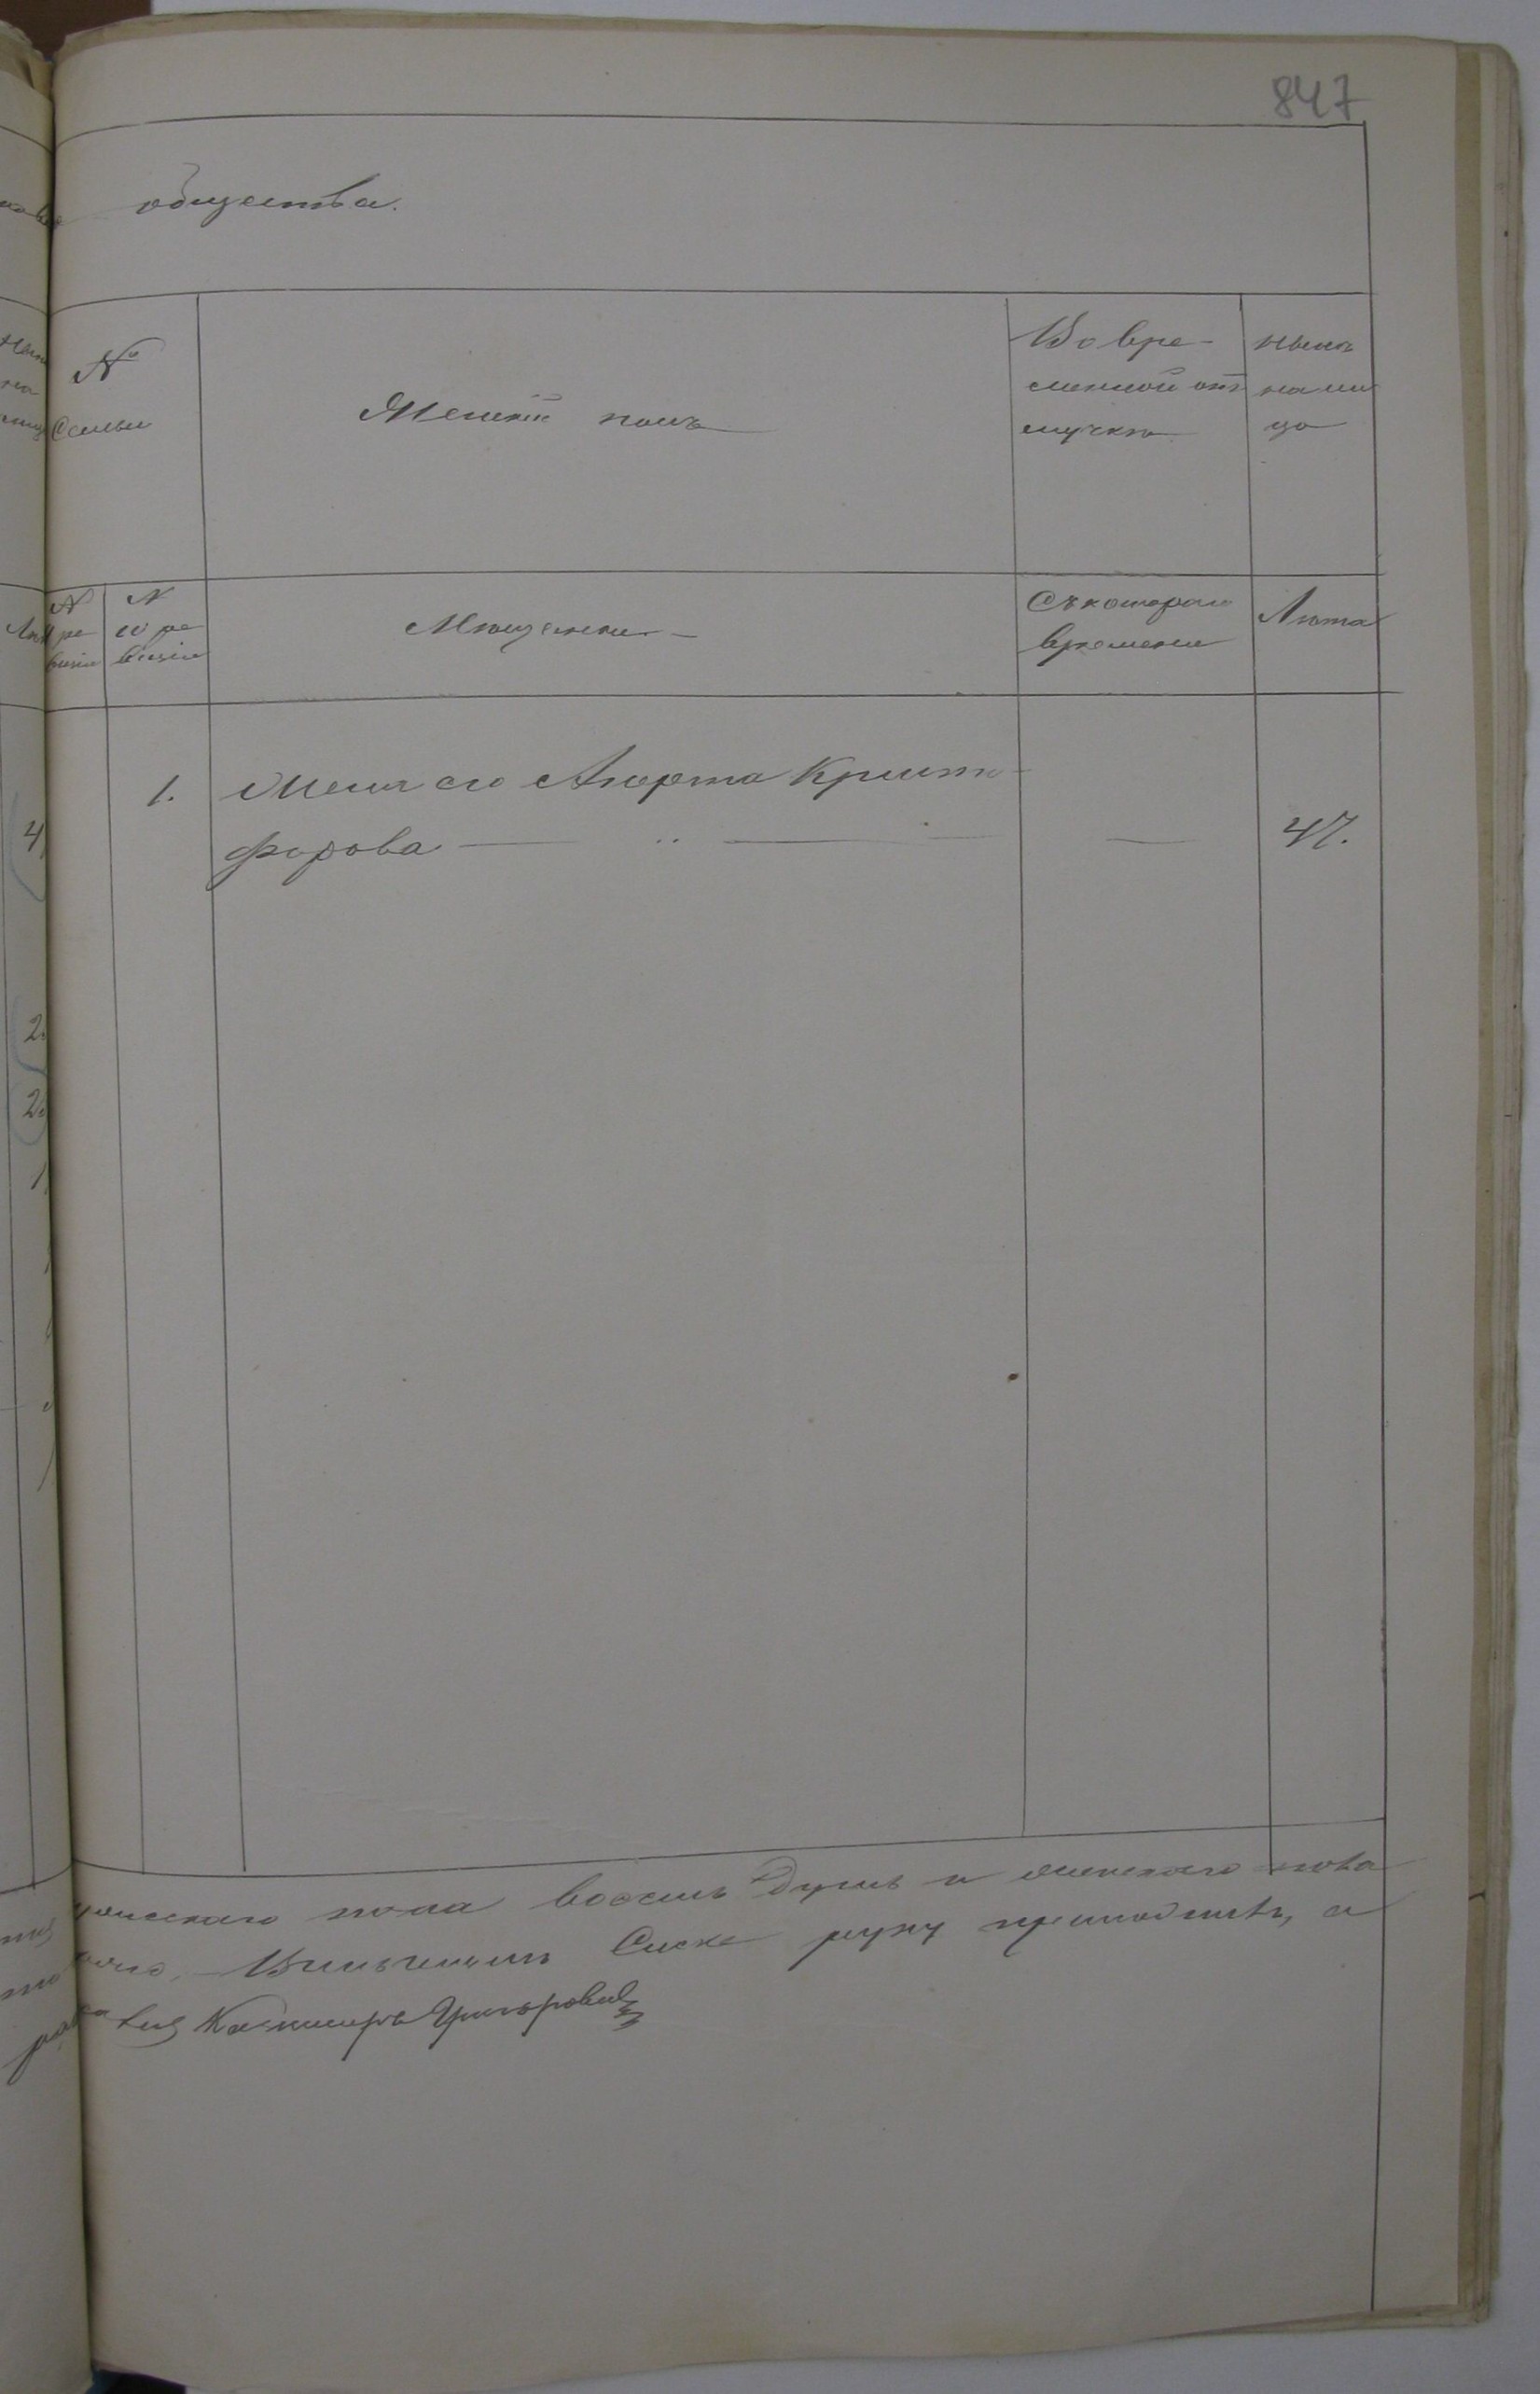 847
общества.
№
Семьи
Женскій полъ
Во вре-
менной от
лучкѣ
нынѣ
на ли
цо
№
ре
визіи
№
10 ре
визіи
Мѣщанки
Съ котораго
времени
Лѣта
1.
Жена его Анорта Кришто-
форова
47.
мужескаго пола восемь душъ и женскаго пола
руку приложилъ, а
Казимиръ Григоровичъ